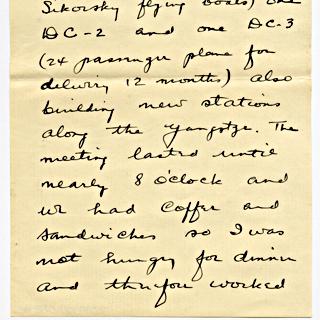 Sikorsky flying boats) one
DC-2 and one DC-3
(24 passenger plane for
delivery 12 months) also
building new stations
along the Yangtze. The
meeting lasted until
nearly 8 o'clock and
we had coffee and
sandwiches so I was
not hungry for dinner
and therefore worked